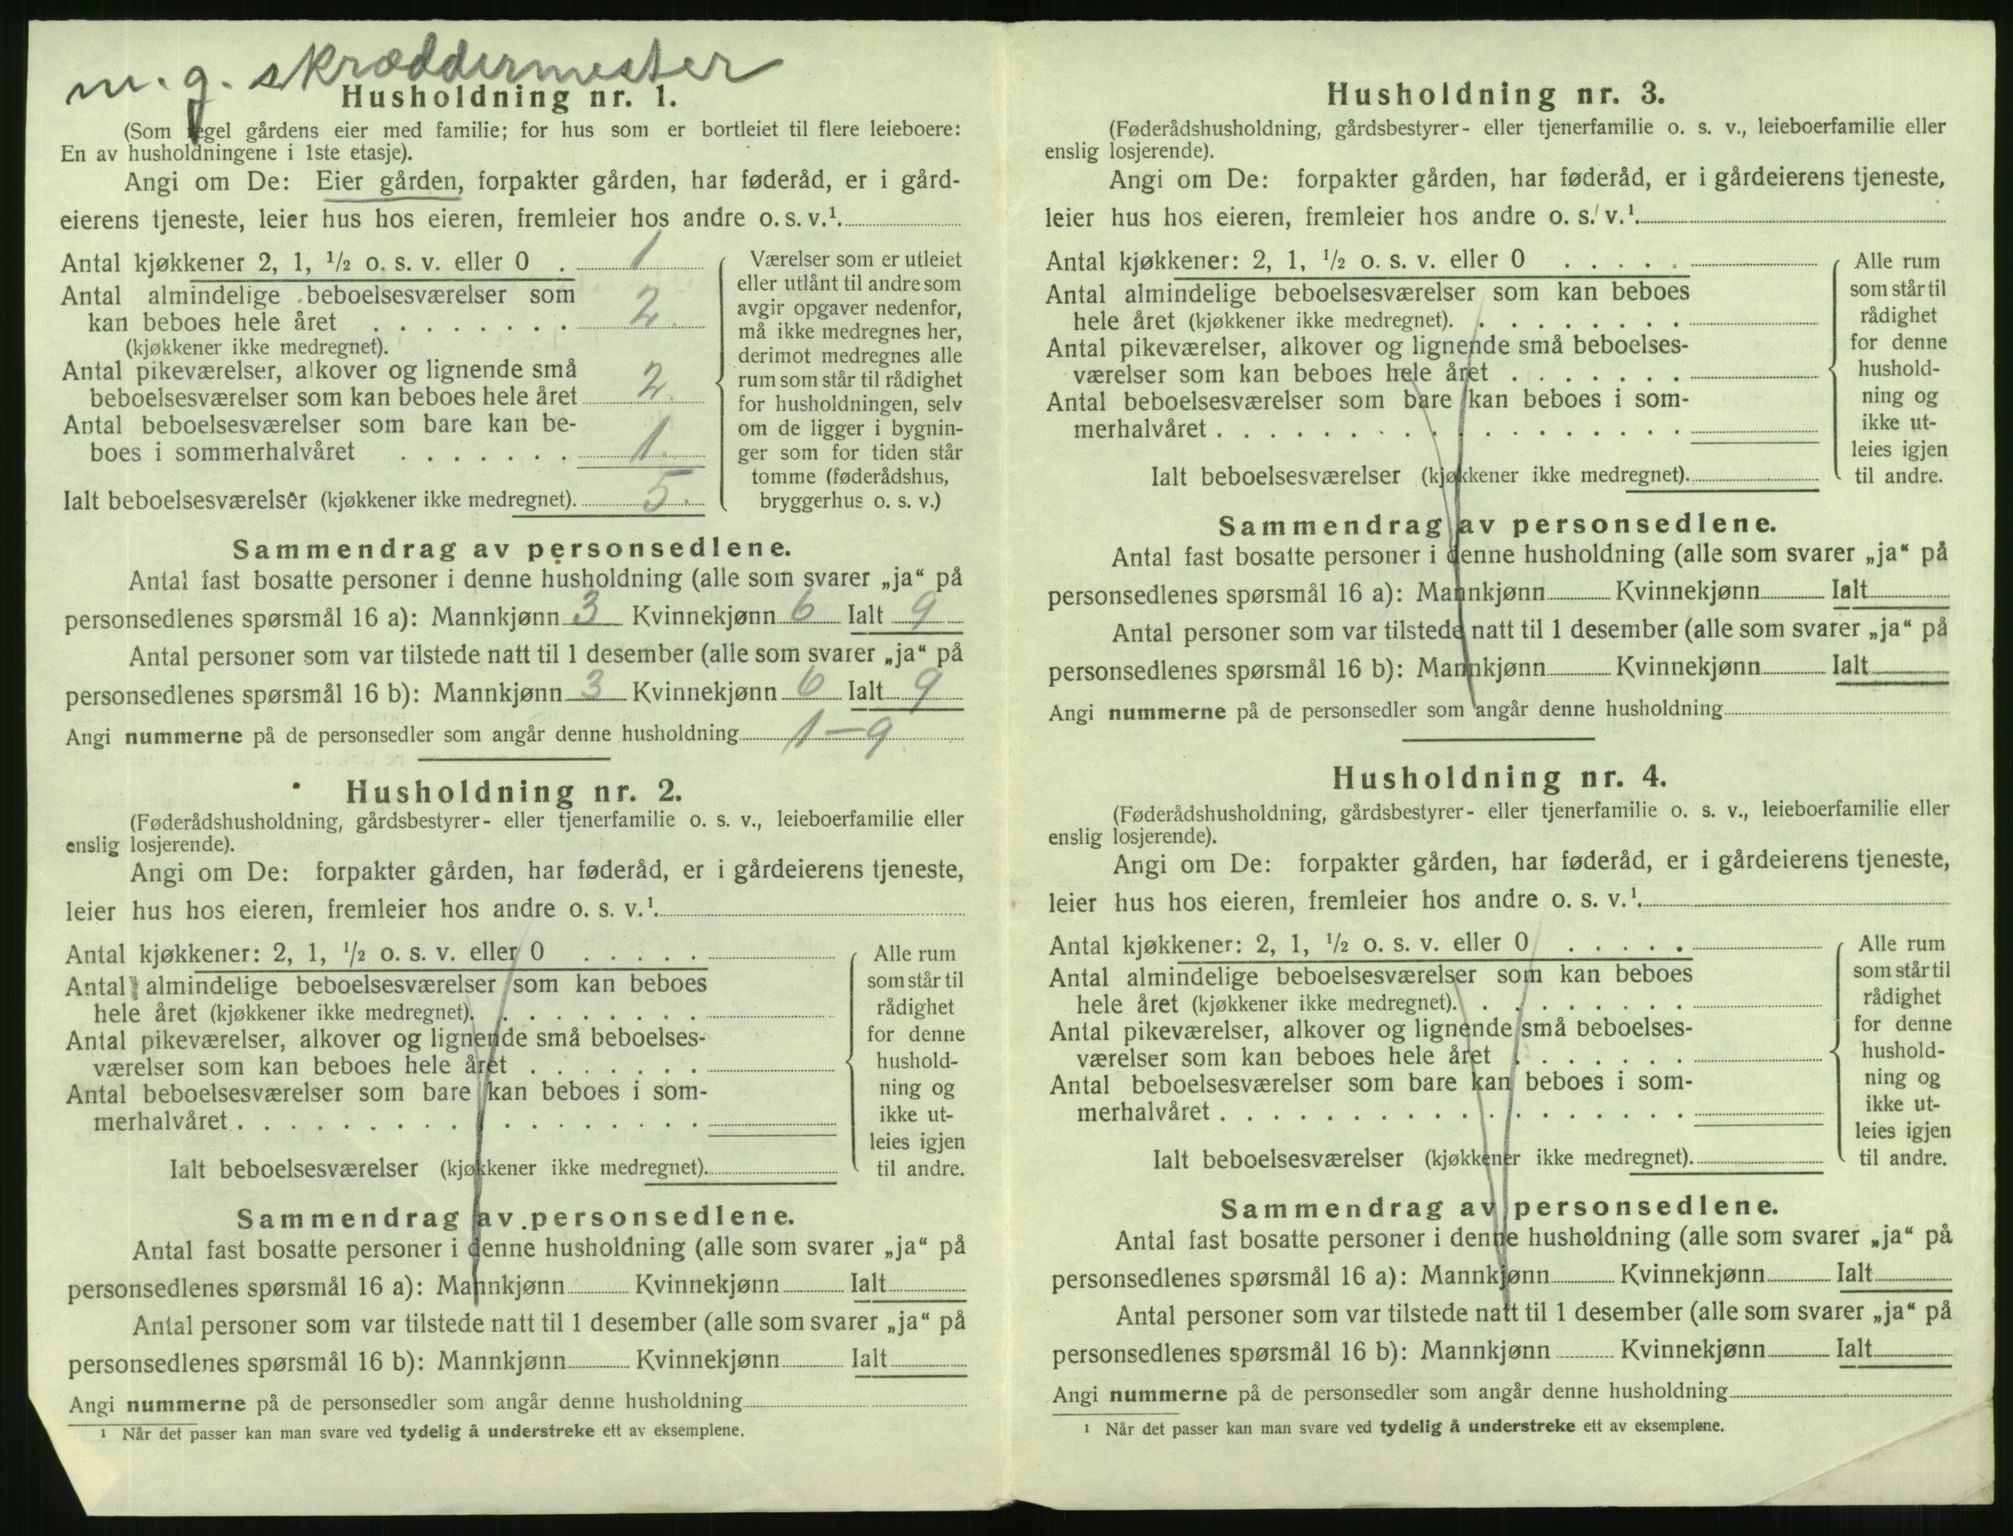 m. g. skræddermester
Husholdning nr. 1.
(Som regel gårdens eier med familie; for hus som er bortleiet til flere leieboere:
En av husholdningene i 1ste etasje).
Angi om De: Eier gården, forpakter gården, har føderåd, er i gård-
eierens tjeneste, leier hus hos eieren, fremleier hos andre o. s. v.¹
Antal kjøkkener 2, 1, ½ o. s. v. eller 0 . 1
Antal almindelige beboelsesværelser som
kan beboes hele året . . . . . . . . 2.
(kjøkkener ikke medregnet).
Antal pikeværelser, alkover og lignende små
beboelsesværelser som kan beboes hele året 2.
Antal beboelsesværelser som bare kan be-
boes i sommerhalvåret . . . . . . . 1.
Ialt beboelsesværelser (kjøkkener ikke medregnet). 5.
Værelser som er utleiet
eller utlånt til andre som
avgir opgaver nedenfor,
må ikke medregnes her,
derimot medregnes alle
rum som står til rådighet
for husholdningen, selv
om de ligger i bygnin-
ger som for tiden står
tomme (føderådshus,
bryggerhus o. s. v.)
Sammendrag av personsedlene.
Antal fast bosatte personer i denne husholdning (alle som svarer „ja“ på
personsedlenes spørsmål 16 a): Mannkjønn 3 Kvinnekjønn 6 Ialt 9
Antal personer som var tilstede natt til 1 desember (alle som svarer „ja“ på
personsedlenes spørsmål 16 b): Mannkjønn 3 Kvinnekjønn 6 Ialt 9
Angi nummerne på de personsedler som angår denne husholdning 1-9
Husholdning nr. 2.
(Føderådshusholdning, gårdsbestyrer- eller tjenerfamilie o. s. v., leieboerfamilie eller
enslig losjerende).
Angi om De: forpakter gården, har føderåd, er i gårdeierens tjeneste,
leier hus hos eieren, fremleier hos andre o. s. v.¹
Antal kjøkkener: 2, 1, ½ o. s. v. eller 0 . . . . .
Antal almindelige beboelsesværelser som kan beboes
hele året (kjøkkener ikke medregnet). . . . . . . . .
Antal pikeværelser, alkover og lignende små beboelses-
værelser som kan beboes hele året . . . . . . .
Antal beboelsesværelser som bare kan beboes i som-
merhalvåret . . . . . . . . . . . . . . . . . .
Ialt beboelsesværelser (kjøkkener ikke medregnet).
Alle rum
som står til
rådighet
for denne
hushold-
ning og
ikke ut-
leies igjen
til andre.
Sammendrag av personsedlene.
Antal fast bosatte personer i denne husholdning (alle som svarer „ja“ på
personsedlenes spørsmål 16 a): Mannkjønn Kvinnekjønn Ialt
Antal personer som var tilstede natt til 1 desember (alle som svarer „ja“ på
personsedlenes spørsmål 16 b): Mannkjønn Kvinnekjønn Ialt
Angi nummerne på de personsedler som angår denne husholdning
¹ Når det passer kan man svare ved tydelig å understreke ett av eksemplene.
Husholdning nr. 3.
(Føderådshusholdning, gårdsbestyrer- eller tjenerfamilie o. s. v., leieboerfamilie eller
enslig losjerende).
Angi om De: forpakter gården, har føderåd, er i gårdeierens tjeneste,
leier hus hos eieren, fremleier hos andre o. s. v.¹
Antal kjøkkener: 2, 1, ½ o. s. v. eller 0 . . . . .
Antal almindelige beboelsesværelser som kan beboes
hele året (kjøkkener ikke medregnet). . . . . . . . .
Antal pikeværelser, alkover og lignende små beboelses-
værelser som kan beboes hele året . . . . . . .
Antal beboelsesværelser som bare kan beboes i som-
merhalvåret . . . . . . . . . . . . . . . . . .
Ialt beboelsesværelser (kjøkkener ikke medregnet).
Alle rum
som står til
rådighet
for denne
hushold-
ning og
ikke ut-
leies igjen
til andre.
Sammendrag av personsedlene.
Antal fast bosatte personer i denne husholdning (alle som svarer „ja“ på
personsedlenes spørsmål 16 a): Mannkjønn Kvinnekjønn Ialt
Antal personer som var tilstede natt til 1 desember (alle som svarer „ja“ på
personsedlenes spørsmål 16 b): Mannkjønn Kvinnekjønn Ialt
Angi nummerne på de personsedler som angår denne husholdning
Husholdning nr. 4.
(Føderådshusholdning, gårdsbestyrer- eller tjenerfamilie o. s. v., leieboerfamilie eller
enslig losjerende).
Angi om De: forpakter gården, har føderåd, er i gårdeierens tjeneste,
leier hus hos eieren, fremleier hos andre o. s. v.¹
Antal kjøkkener: 2, 1, ½ o. s. v. eller 0 . . . . .
Antal almindelige beboelsesværelser som kan beboes
hele året (kjøkkener ikke medregnet). . . . . . . . .
Antal pikeværelser, alkover og lignende små beboelses-
værelser som kan beboes hele året . . . . . . .
Antal beboelsesværelser som bare kan beboes i som-
merhalvåret . . . . . . . . . . . . . . . . . .
Ialt beboelsesværelser (kjøkkener ikke medregnet).
Alle rum
som står til
rådighet
for denne
hushold-
ning og
ikke ut-
leies igjen
til andre.
Sammendrag av personsedlene.
Antal fast bosatte personer i denne husholdning (alle som svarer „ja“ på
personsedlenes spørsmål 16 a): Mannkjønn Kvinnekjønn Ialt
Antal personer som var tilstede natt til 1 desember (alle som svarer „ja“ på
personsedlenes spørsmål 16 b): Mannkjønn Kvinnekjønn Ialt
Angi nummerne på de personsedler som angår denne husholdning
¹ Når det passer kan man svare ved tydelig å understreke ett av eksemplene.